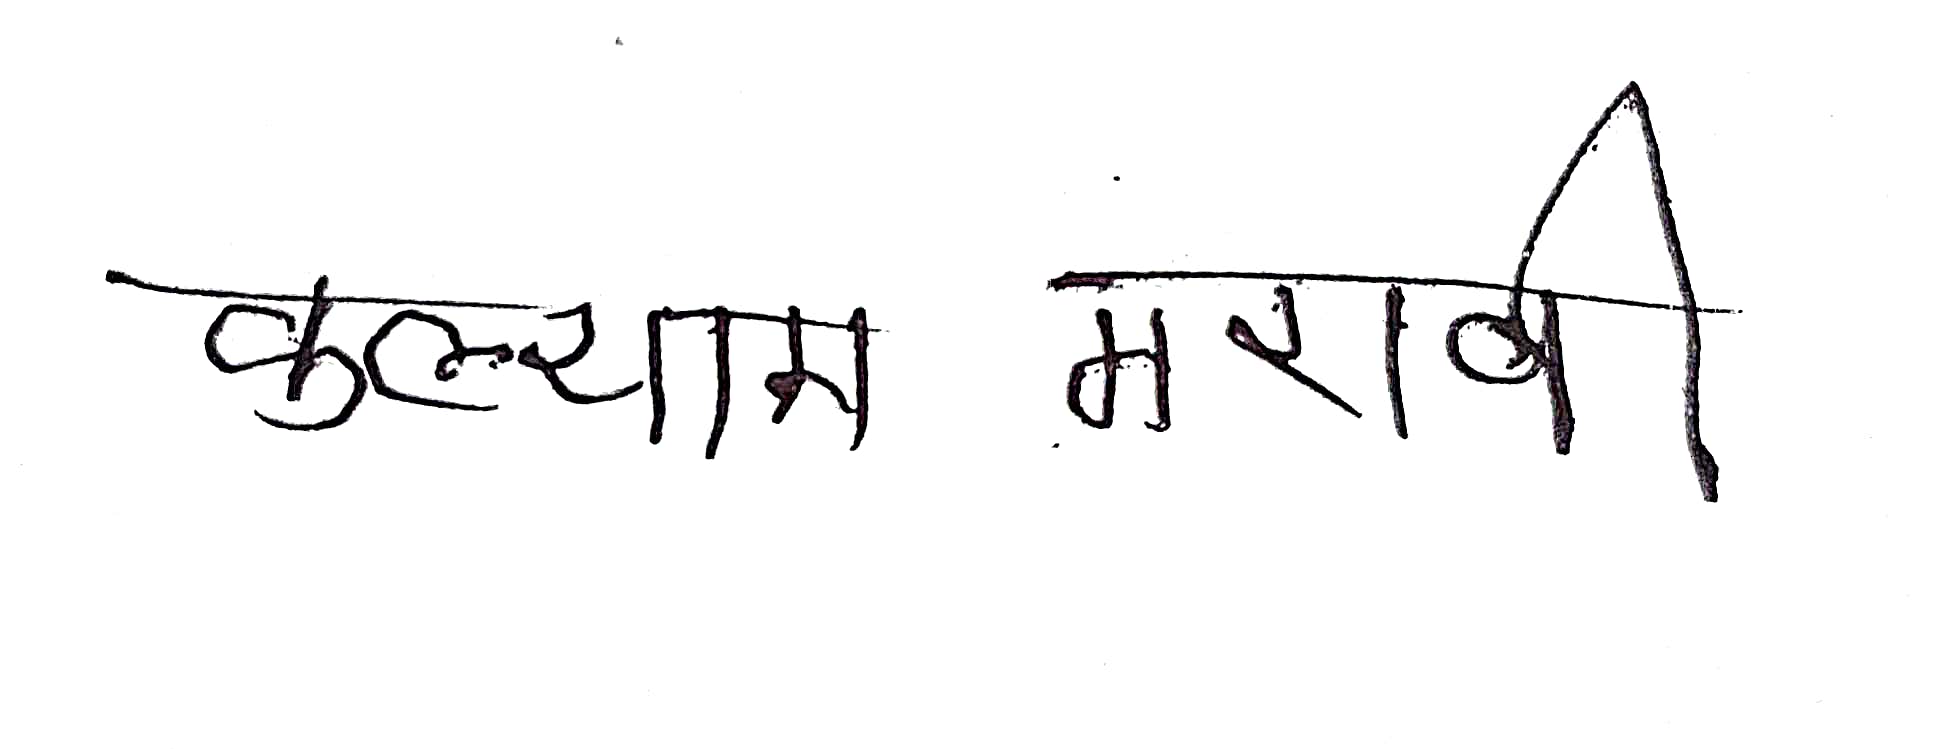 कल्याम मरावी